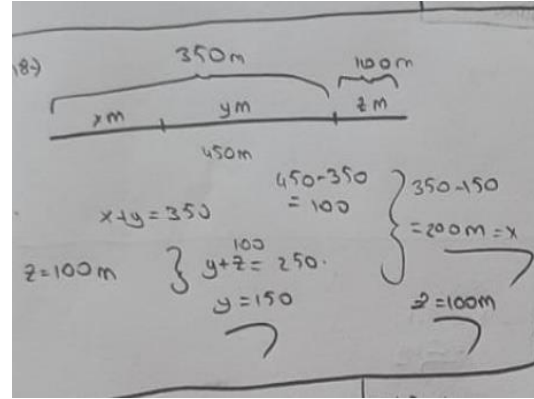 18-)
350m
100m
xm ym zm
450m
450-350
= 100
350-150
= 200m = x
x+y = 350
z=100m
100
y+z= 250.
y = 150
z=100m